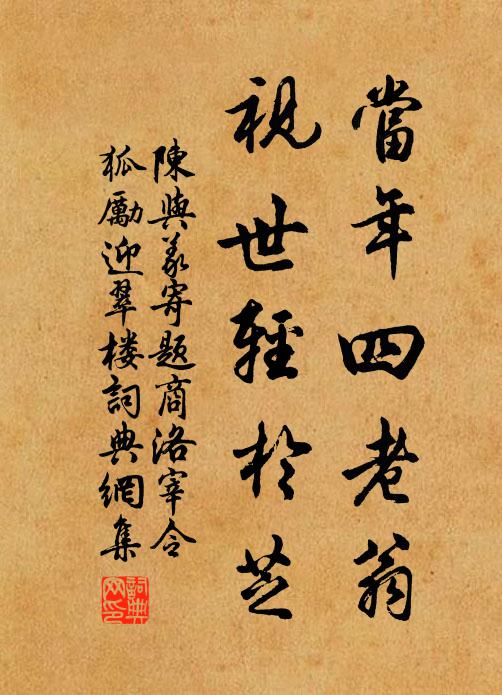 當年四老翁
視世輕於芝
陳與義寄題商洛宰令
狐勵迎翠楼詞典網集
詞典网印